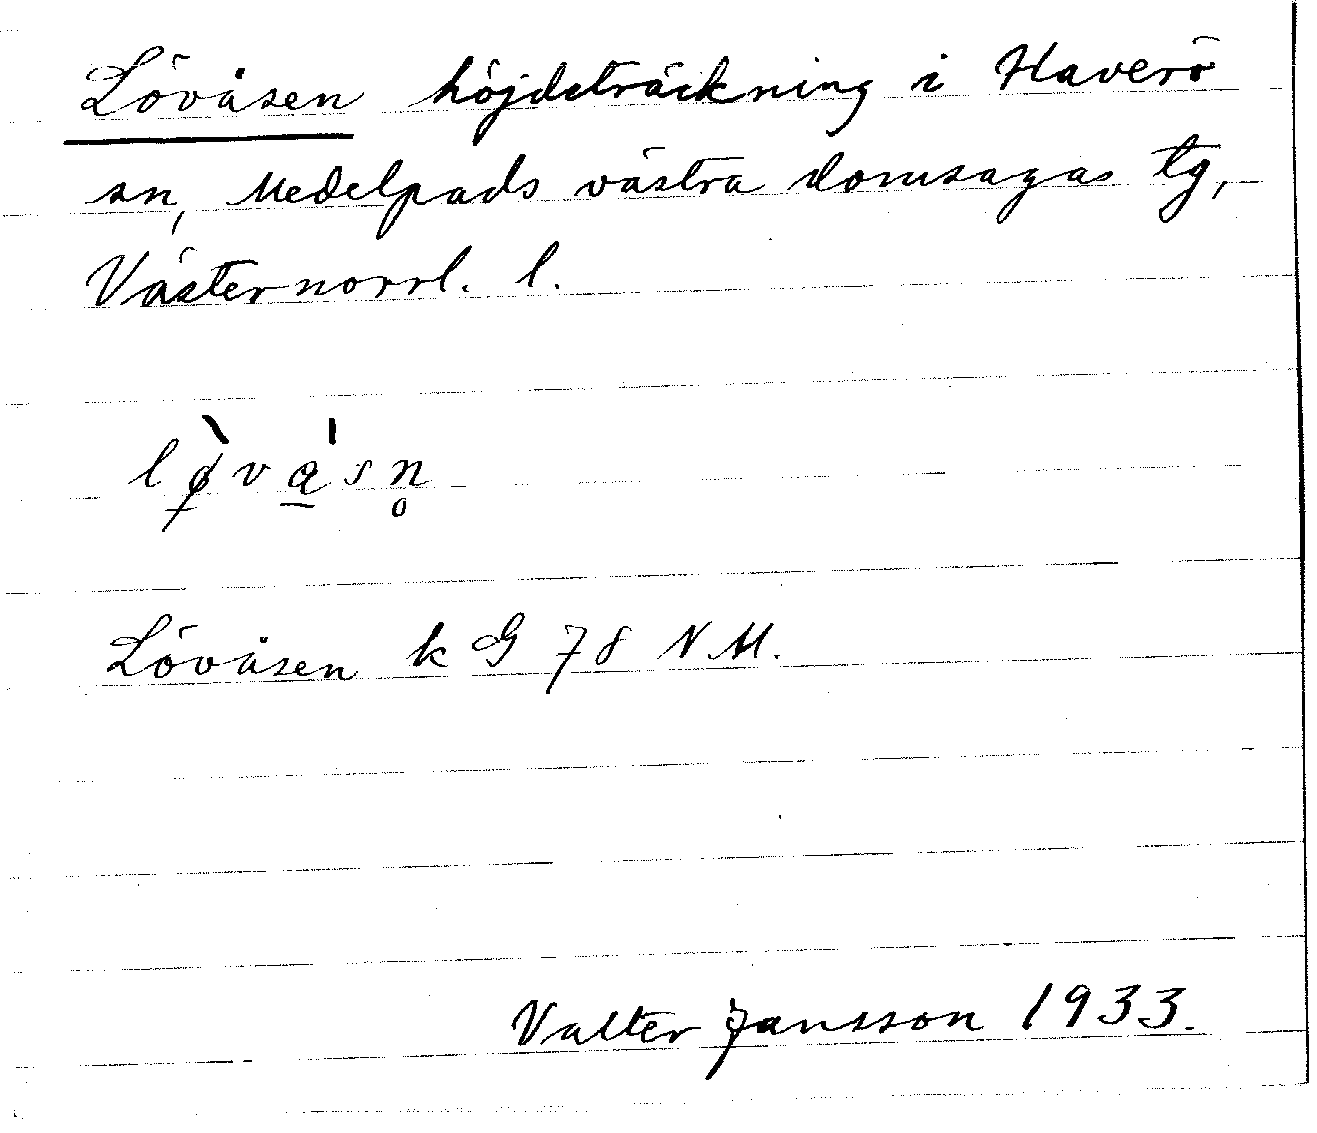 Lövåsen höjdsträckning i Haverö
sn, Medelpads västra domsagas tg,
Västernorrl. l.
lø̀vå̱ˈsn̥
Lövåsen k G 78 N.M.
Valter Jansson 1933.